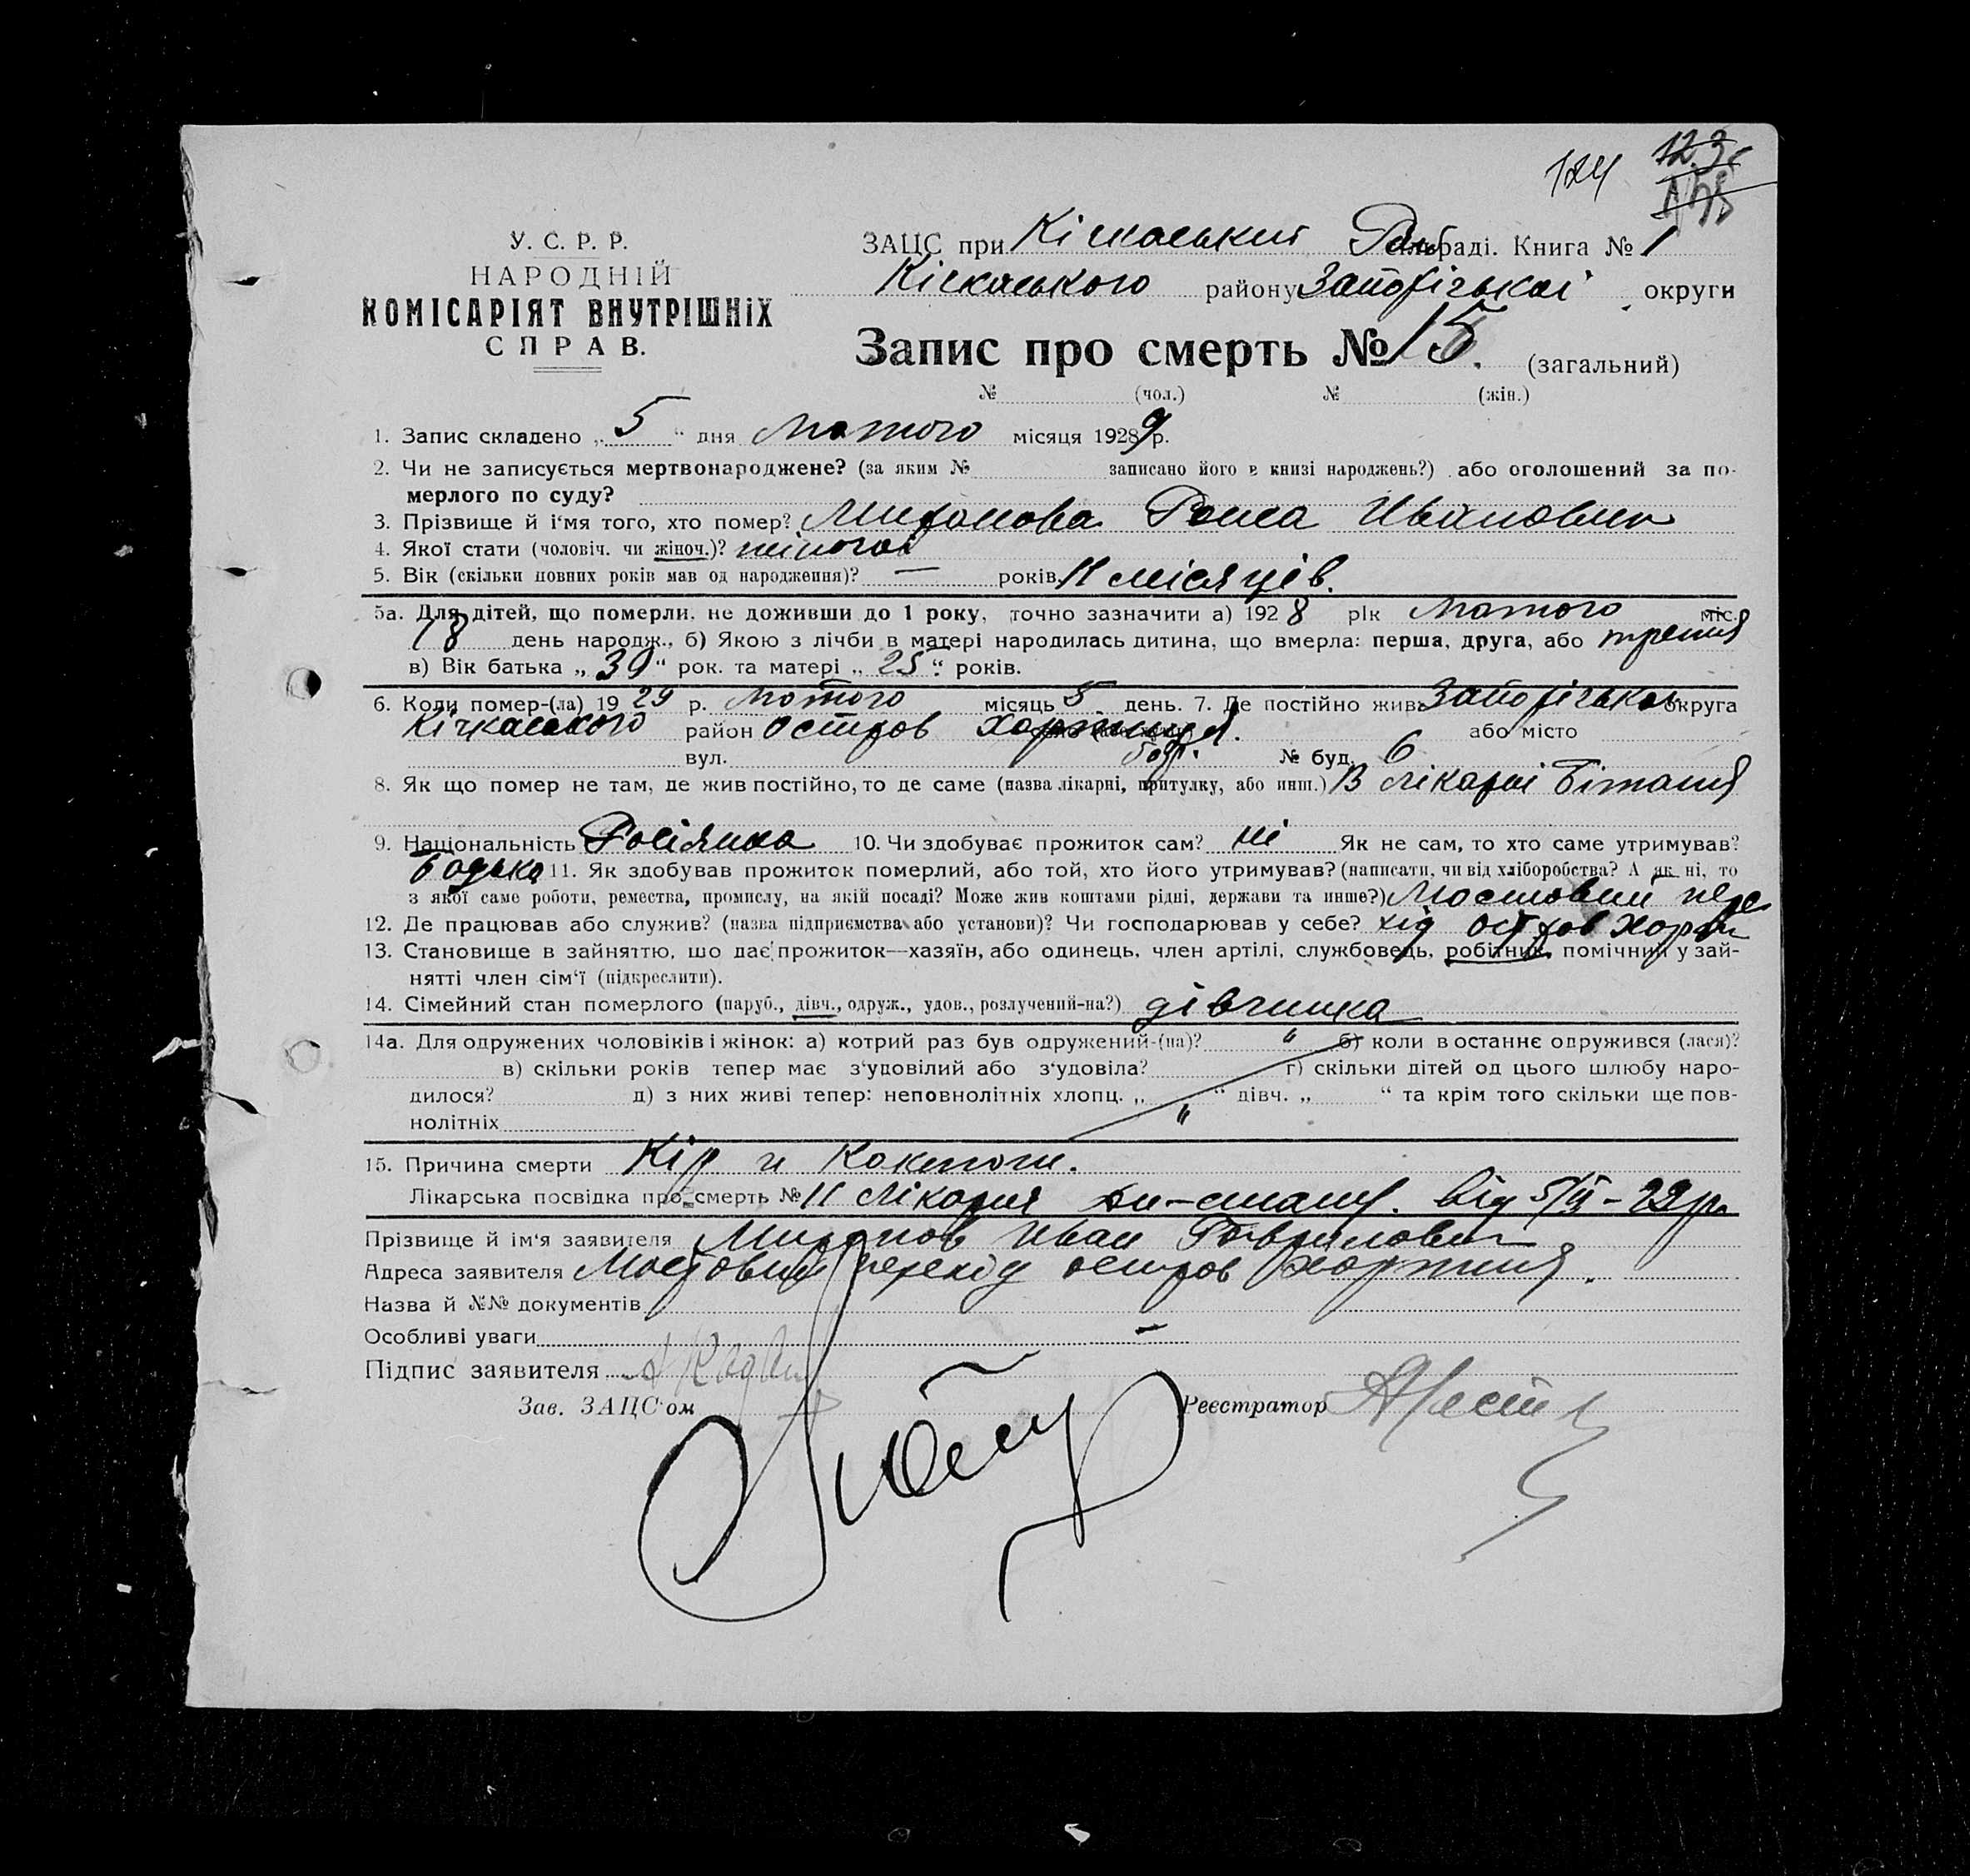 124 123
У. С. Р. Р.
НАРОДНІЙ
КОМІСАРІЯТ ВНУТРІШНІХ
СПРАВ.
ЗАЦС при Кічкаський Рай сільраді. Книга № 1
Кічкаського району Запорізької округи
Запис про смерть № 15. (загальний)
№ (чол.) № (жін.)
1. Запис складено „ 5 “ дня Лютого місяця 1929 р.
2. Чи не записується мертвонароджене? (за яким № записано його в книзі народжень?) або оголошений за по-
мерлого по суду?
3. Прізвище й і'мя того, хто помер? Миронова Раиса Ивановна
4. Якої стати (чоловіч. чи жіноч.)? жіночої
5. Вік (скільки повних років мав од народження)? — років 11 місяців.
5а. Для дітей, що померли, не доживши до 1 року, точно зазначити а) 1928 рік Лютого міс.
18 день народж., б) Якою з лічби в матері народилась дитина, що вмерла: перша, друга, або третя
в) Вік батька „ 39 “ рок. та матері „ 25 “ років.
6. Коли помер-(ла) 1929 р. Лютого місяць 5 день. 7. Де постійно жив Запорізька округа
Кічкаського район остров Хортиця. або місто
вул. № буд. 6
8. Як що помер не там, де жив постійно, то де саме (назва лікарні, притулку, або инш.) В лікарні Бітанія
9. Національність Росіянка 10. Чи здобуває прожиток сам? ні Як не сам, то хто саме утримував?
Батька 11. Як здобував прожиток померлий, або той, хто його утримував? (написати, чи від хліборобства? А як ні, то
з якої саме роботи, ремества, промислу, на якій посаді? Може жив коштами рідні, держави та инше?) Мостовий пере
12. Де працював або служив? (назва підприємства або установи)? Чи господарював у себе? хід остров Хорти
13. Становище в зайняттю, шо дає прожиток—хазяїн, або одинець, член артілі, службовець, робітник, помічний у зай-
нятті член сім'ї (підкреслити).
14. Сімейний стан померлого (паруб., дівч., одруж., удов., розлучений-на?) дівчинка
14а. Для одружених чоловіків і жінок: а) котрий раз був одружений-(на)? “ б) коли в останнє одружився (лася)?
в) скільки років тепер має з'удовілий або з'удовіла? г) скільки дітей од цього шлюбу наро-
дилося? д) з них живі тепер: неповнолітніх хлопц. „ “ дівч. „ “ та крім того скільки ще пов-
нолітніх “
15. Причина смерти Кір и Коклюш.
Лікарська посвідка про смерть № 11 лікарня від 5/II-29р.
Прізвище й ім'я заявителя Миронов Иван Гаврилович
Адреса заявителя Мостовий перехід остров Хортиця.
Назва й №№ документів
Особливі уваги —
Підпис заявителя
Зав. ЗАЦС'ом Реєстратор